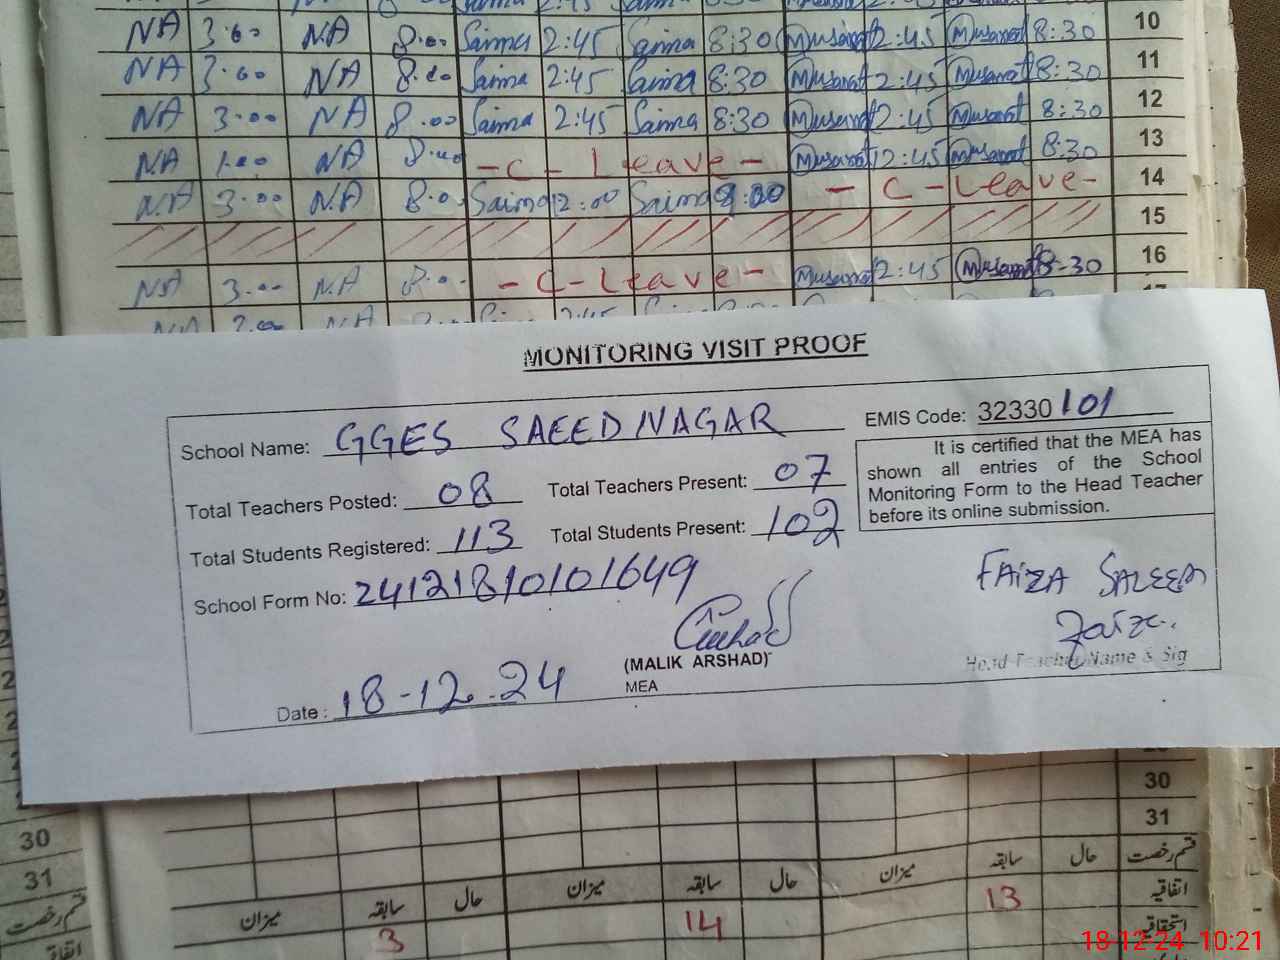 NA 3.00 NA 8.00 Saima 2:45 Saima 8:30 Musarat 2:45 Musarat 8:30 10
NA 3.00 NA 8.00 Saima 2:45 Saima 8:30 Musarat 2:45 Musarat 8:30 11
NA 3.00 NA 8.00 Saima 2:45 Saima 8:30 Musarat 2:45 Musarat 8:30 12
NA 1.00 NA 8.00 - C - Leave - Musarat 12:45 Musarat 8:30 13
NA 3.00 NA 8.0 Saima 2:00 Saima - C - Leave - 14
15
NA 3.00 NA 8.0 - C - Leave - Musarat 2:45 Musarat 8:30 16
MONITORING VISIT PROOF
School Name: GGES SAEED NAGAR
EMIS Code: 32330101
Total Teachers Posted: 08 Total Teachers Present: 07
Total Students Registered: 113 Total Students Present: 102
It is certified that the MEA has
shown all entries of the School
Monitoring Form to the Head Teacher
before its online submission.
School Form No: 24121810101649
FAIZA SALEEM
Faiza.
(MALIK ARSHAD)
MEA
Head Teacher Name & Sig
Date: 18-12-24
30
31
30
31
میزان سابقہ حال میزان سابقہ حال میزان سابقہ حال قسم رخصت
3 14 13 اتفاقیہ
استحقاقیہ
قسم رخصت
18-12-24 10:21